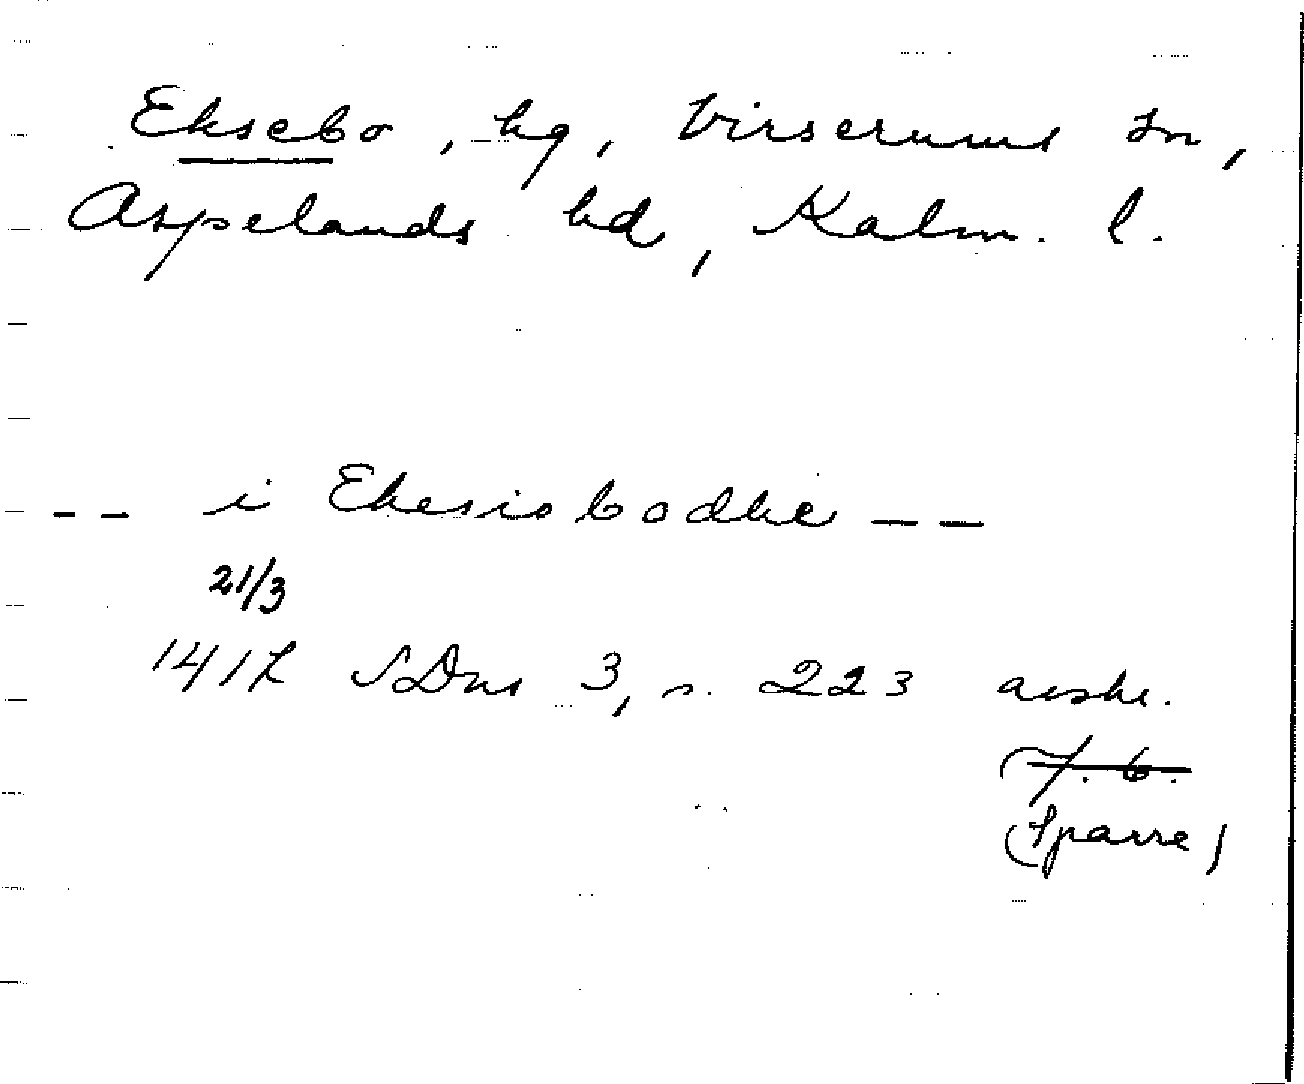 Eksebo, hg, Virserums sn,
Aspelands hd, Kalm. l.
-- i Ekesiobodhe --
21/3
1417 SDns 3, s. 223 avskr.
(Sparre)